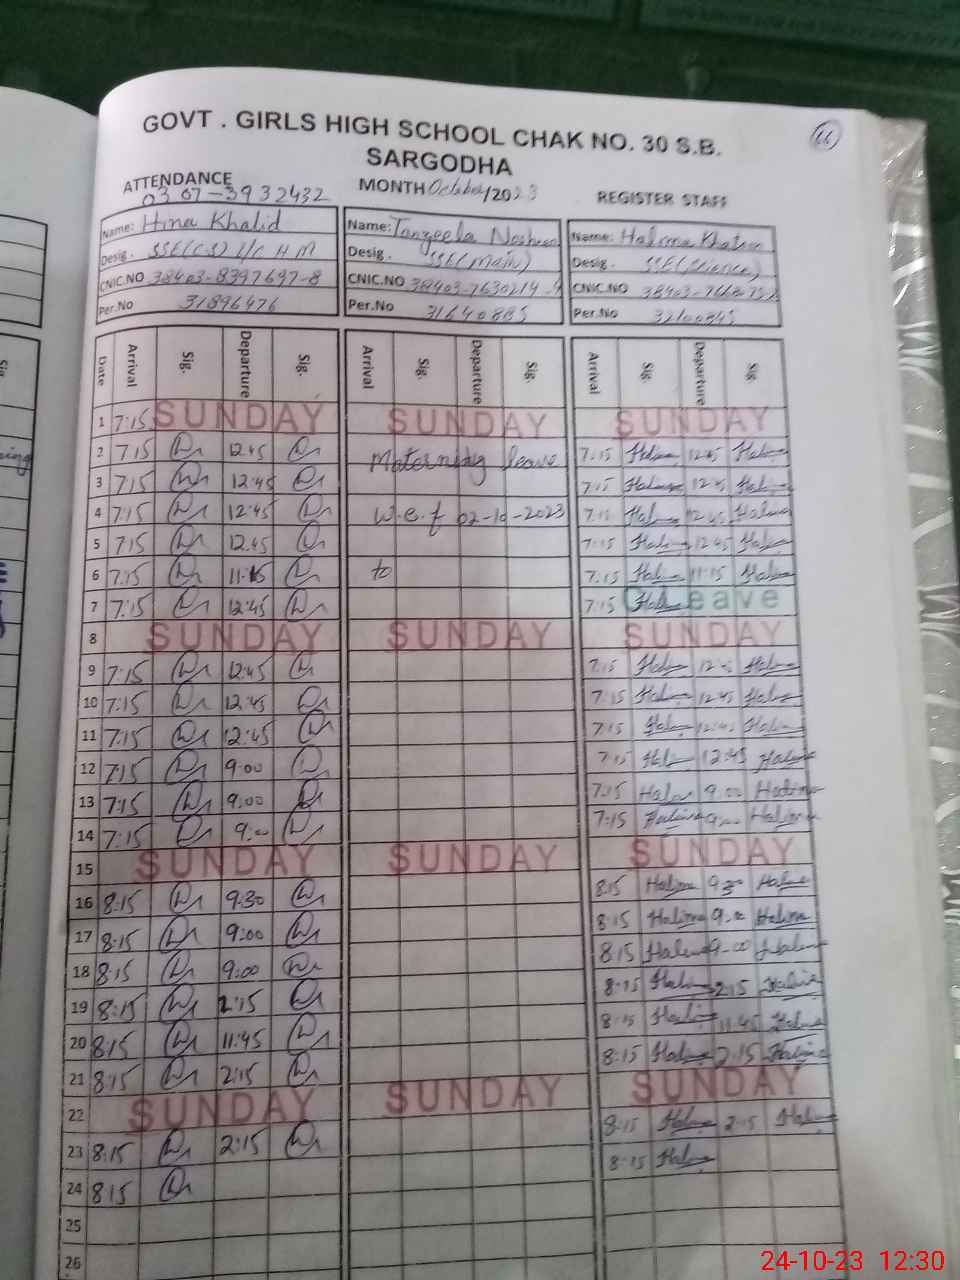 GOVT . GIRLS HIGH SCHOOL CHAK NO. 30 S.B.
SARGODHA
66
ATTENDANCE MONTH October/2023 REGISTER STAFF
0307-3932432
Name: Hina Khalid Name: Tanzeela Nosheen Name: Halima Khatoon
Desig. SSE(CS) I/C H M Desig. SSE(Main) Desig. SSE(Science)
CNIC.NO 38403-8397697-8 CNIC.NO 38403-7630214-9 CNIC.NO
Per.No 31896476 Per.No 31640885 Per.No 32100845
Date Arrival Sig. Departure Sig. Arrival Sig. Departure Sig. Arrival Sig. Departure Sig.
1 7:15 SUNDAY SUNDAY SUNDAY
2 7:15 12:45 Maternity leave 7:15 Halima 12:45 Halima
3 7:15 12:45 7:15 Halima 12:45 Halima
4 7:15 12:45 w.e.f 02-10-2023 7:15 Halima 12:45 Halima
5 7:15 12:45 7:15 Halima 12:45 Halima
6 7:15 11:15 to 7:15 Halima 11:15 Halima
7 7:15 12:45 7:15 Halima Leave
8 SUNDAY SUNDAY SUNDAY
9 7:15 12:45 7:15 Halima 12:45 Halima
10 7:15 12:45 7:15 Halima 12:45 Halima
11 7:15 12:45 7:15 Halima 12:45 Halima
12 7:15 9:00 7:15 Halima 12:45 Halima
13 7:15 9:00 7:15 Halima 9:00 Halima
14 7:15 9:00 7:15 Halima 9:00 Halima
15 SUNDAY SUNDAY SUNDAY
16 8:15 9:30 8:15 Halima 9:30 Halima
17 8:15 9:00 8:15 Halima 9:00 Halima
18 8:15 9:00 8:15 Halima 9:00 Halima
19 8:15 2:15 8:15 Halima 2:15 Halima
20 8:15 11:45 8:15 Halima 11:45 Halima
21 8:15 2:15 8:15 Halima 2:15 Halima
22 SUNDAY SUNDAY SUNDAY
23 8:15 2:15 8:15 Halima 2:15 Halima
24 8:15 8:15 Halima
25
26
24-10-23 12:30